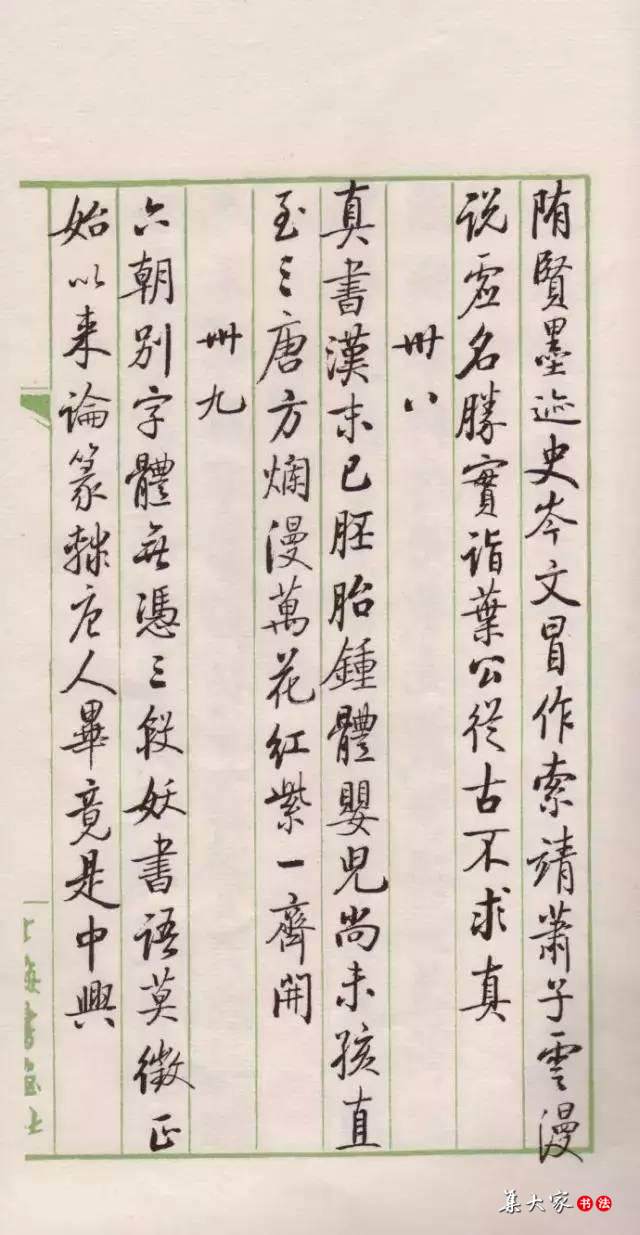 隋賢墨迹史岑文冒作索靖蕭子雲漫
说虛名勝實詣葉公從古不求真
卅八
真書漢末已胚胎鍾體嬰兒尚未孩直
至三唐方爛漫萬花紅紫一齊開
卅九
六朝別字體無憑三段妖書語莫徵正
始以來論篆隸唐人畢竟是中興
上海書画社
集大家书法